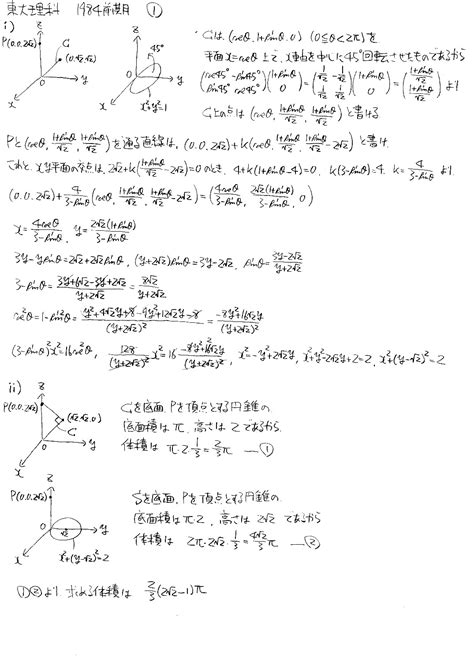 東大理科 1984前期日 ①
i)
z
P(0.0.2√2)
C
(0.√2.√2)
O
y
x
z
45°
O
y
x
x²+y²=1
Cは、(cosθ, 1+sinθ, 0) (0≦θ<2π)を
平面 x=cosθ 上で、x軸を中心に45°回転させたものであるから
(cos45° -sin45° / sin45° cos45°)(1+sinθ / 0) = (1/√2 -1/√2 / 1/√2 1/√2)(1+sinθ / 0) = ((1+sinθ)/√2 / (1+sinθ)/√2) より
C上の点は (cosθ, (1+sinθ)/√2, (1+sinθ)/√2) と書ける
Pと(cosθ, (1+sinθ)/√2, (1+sinθ)/√2)を通る直線は、(0.0.2√2)+k(cosθ, (1+sinθ)/√2, (1+sinθ)/√2-2√2) と書け
これと、xy平面の交点は、2√2+k((1+sinθ)/√2-2√2)=0のとき、4+k(1+sinθ-4)=0, k(3-sinθ)=4, k=4/(3-sinθ) より
(0.0.2√2)+4/(3-sinθ)(cosθ, (1+sinθ)/√2, (1+sinθ)/√2-2√2)=(4cosθ/(3-sinθ), 2√2(1+sinθ)/(3-sinθ), 0)
x=4cosθ/(3-sinθ), y=2√2(1+sinθ)/(3-sinθ)
3y-ysinθ=2√2+2√2sinθ, (y+2√2)sinθ=3y-2√2, sinθ=(3y-2√2)/(y+2√2)
3-sinθ=(3y+6√2-3y+2√2)/(y+2√2)=8√2/(y+2√2)
cos²θ=1-sin²θ=(y²+4√2y+8-9y²+12√2y-8)/(y+2√2)²=(-8y²+16√2y)/(y+2√2)²
(3-sinθ)²x²=16cos²θ, 128/(y+2√2)² x²=16 (-8y²+16√2y)/(y+2√2)², x²=-y²+2√2y, x²+y²-2√2y+2=2, x²+(y-√2)²=2
ii)
z
P(0.0.2√2)
(√2.√2.0)
C
O
y
x
Cを底面、Pを頂点とする円錐の
底面積はπ、高さは2であるから
体積は π・2・1/3=2/3π ―①
z
P(0.0.2√2)
O
√2
y
x
x²+(y-√2)²=2
Sを底面、Pを頂点とする円錐の
底面積はπ・2、高さは 2√2 であるから
体積は 2π・2√2・1/3=4√2/3π ―②
①②より、求める体積は 2/3(2√2-1)π